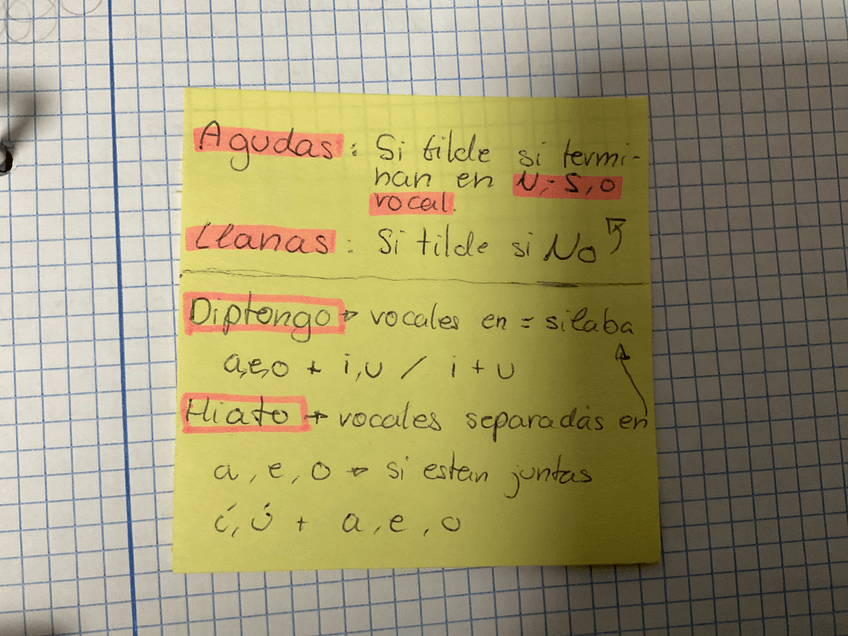 Agudas: Si tilde si termi-
nan en N, S, o
vocal.
Llanas: Si tilde si No
Diptongo → vocales en = silaba
a,e,o + i,u / i + u
Hiato → vocales separadas en
a, e, o → si estan juntas
í, ú + a, e, o